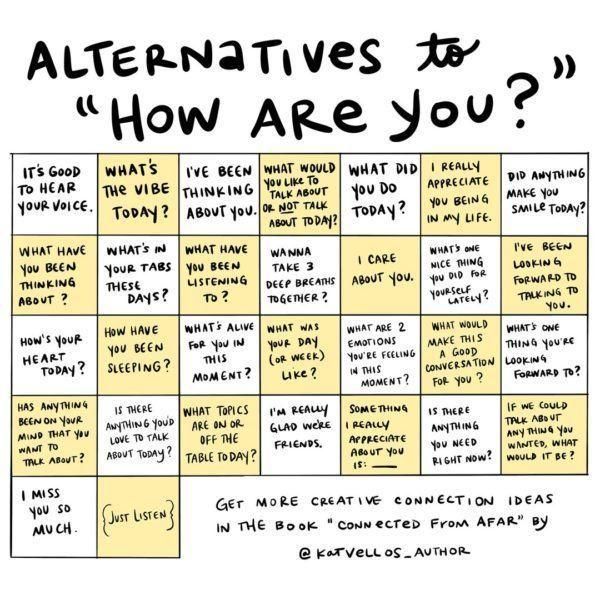 ALTERNATIVES to
"HOW ARE YOU?"
IT'S GOOD
TO HEAR
YOUR VOICE.
WHAT'S
THE VIBE
TODAY?
I'VE BEEN
THINKING
ABOUT YOU.
WHAT WOULD
YOU LIKE TO
TALK ABOUT
OR NOT TALK
ABOUT TODAY?
WHAT DID
YOU DO
TODAY?
I REALLY
APPRECIATE
YOU BEING
IN MY LIFE.
DID ANYTHING
MAKE YOU
SMILE TODAY?
WHAT HAVE
YOU BEEN
THINKING
ABOUT?
WHAT'S IN
YOUR TABS
THESE
DAYS?
WHAT HAVE
YOU BEEN
LISTENING
TO?
WANNA
TAKE 3
DEEP BREATHS
TOGETHER?
I CARE
ABOUT YOU.
WHAT'S ONE
NICE THING
YOU DID FOR
YOURSELF
LATELY?
I'VE BEEN
LOOKING
FORWARD TO
TALKING TO
YOU.
HOW'S YOUR
HEART
TODAY?
HOW HAVE
YOU BEEN
SLEEPING?
WHAT'S ALIVE
FOR YOU IN
THIS
MOMENT?
WHAT WAS
YOUR DAY
(OR WEEK)
LIKE?
WHAT ARE 2
EMOTIONS
YOU'RE FEELING
IN THIS
MOMENT?
WHAT WOULD
MAKE THIS
A GOOD
CONVERSATION
FOR YOU?
WHAT'S ONE
THING YOU'RE
LOOKING
FORWARD TO?
HAS ANYTHING
BEEN ON YOUR
MIND THAT YOU
WANT TO
TALK ABOUT?
IS THERE
ANYTHING YOU'D
LOVE TO TALK
ABOUT TODAY?
WHAT TOPICS
ARE ON OR
OFF THE
TABLE TODAY?
I'M REALLY
GLAD WE'RE
FRIENDS.
SOMETHING
I REALLY
APPRECIATE
ABOUT YOU
IS: ___
IS THERE
ANYTHING
YOU NEED
RIGHT NOW?
IF WE COULD
TALK ABOUT
ANYTHING YOU
WANTED, WHAT
WOULD IT BE?
I MISS
YOU SO
MUCH.
{JUST LISTEN}
GET MORE CREATIVE CONNECTION IDEAS
IN THE BOOK "CONNECTED FROM AFAR" BY
@KATVELLOS_AUTHOR